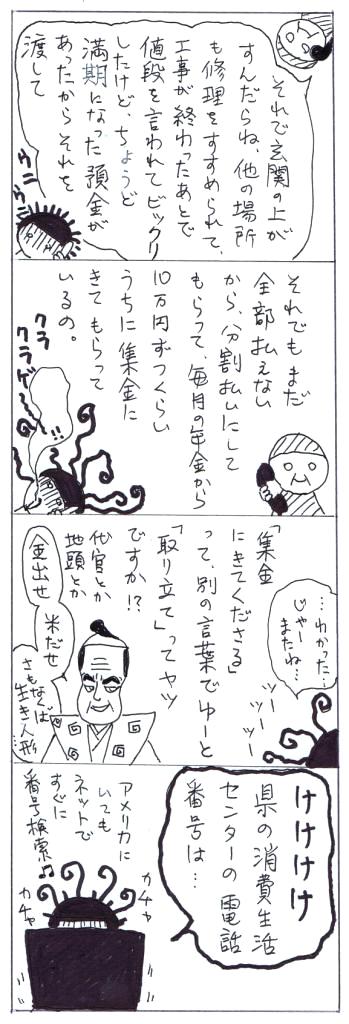 それで玄関の上が
すんだらね、他の場所
も修理をすすめられて、
工事が終わったあとで
値段を言われてビックリ
したけど、ちょうど
満期になった預金が
あったからそれを
渡して
ウニ
ウニ
それでもまだ
全部払えない
から、分割払いにして
もらって、毎月の年金から
10万円ずつくらい
うちに集金に
きてもらって
いるの。
クラ
クラゲ〜
…わかった…
じゃー
またね…
ツー
ツー
ツー
「集金
にきてくださる」
って、別の言葉でゆーと
「取り立て」ってヤツ
ですか!?
代官とか
地頭とか
金出せ
米だせ
さもなくば
生き人形…
けけけけ
県の消費生活
センターの電話
番号は…
アメリカに
いても
ネットで
すぐに
番号検索♫
カチャ
カチャ